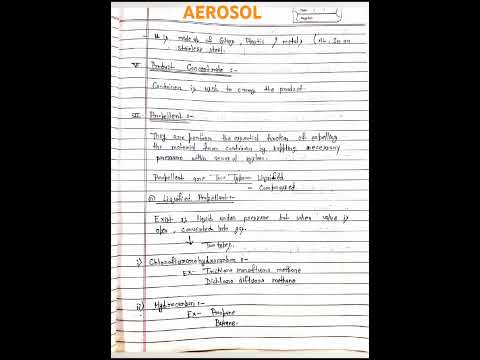 AEROSOL
- It is made up of Glass, Plastic, metal (AL, Tin on
stainless steel.
V Product Concentrate :-
Container is use to carry the product.
VI Propellent :-
They are perform the essential function of expelling
the material from container by supplying necessary
pressure within aerosol system.
Propellent are Two Type - Liquified
- Compressed
Liquified Propellent :-
Exist as liquid under pressure but when valve is
open, converted into gas.
↓
Two types.
i) Chlorofluorohydrocarbon :-
Ex- Trichloro monofluoro methane
Dichloro difluoro methane
ii) Hydrocarbon :-
Ex- Propane
Butane